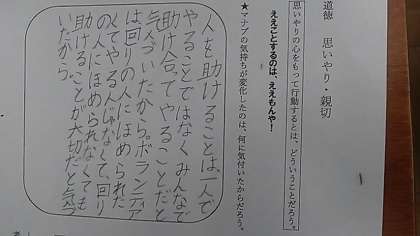 道徳　思いやり・親切
思いやりの心をもって行動するとは、どういうことだろう。
ええことするのは、ええもんや！
★マナブの気持ちが変化したのは、何に気付いたからだろう。
人を助けることは、一人で
やることではなくみんなで
助け合ってやることだと
気づいたから。ボランティア
は回りの人にほめられた
くてやる人じゃなくて、回り
の人にほめられなくても
助けることが大切だと気づ
いたから。